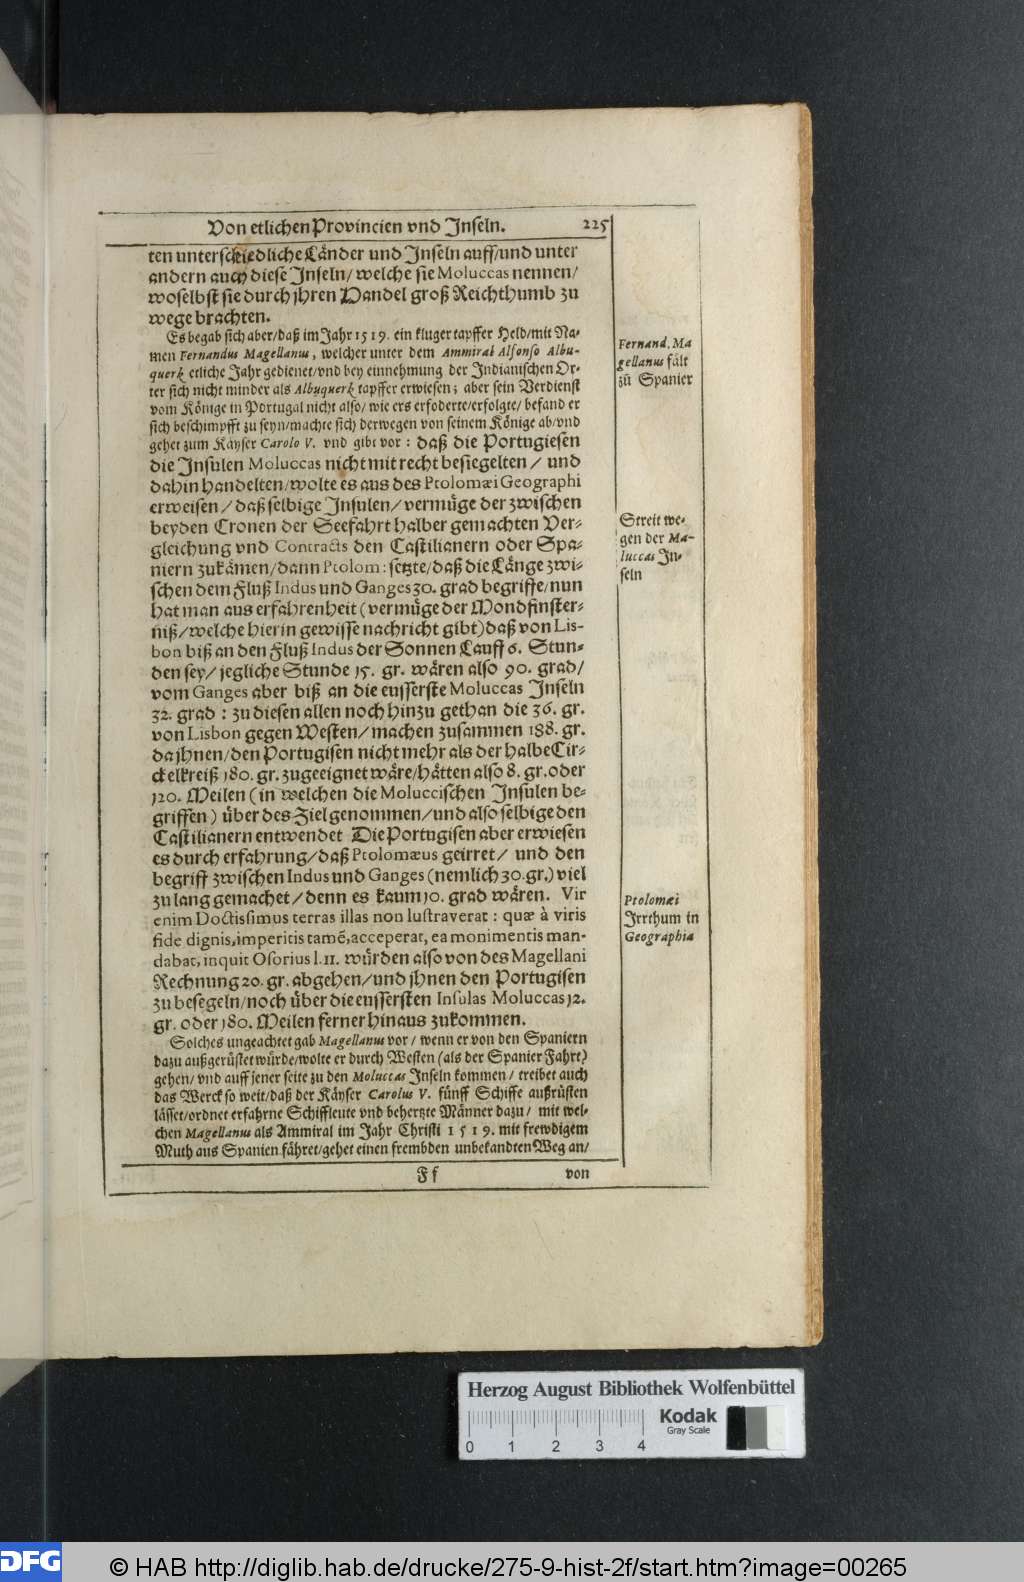 Von etlichen Provincien vnd Inseln. 225
ten unterschiedliche Länder und Inseln auff/und unter
andern auch diese Inseln/ welche sie Moluccas nennen/
woselbst sie durch jhren Handel groß Reichthumb zu
wege brachten.
Es begab sich aber/daß im Jahr 1519. ein kluger tapffer Held/mit Na-
men Fernandus Magellanus, welcher unter dem Ammiral Alfonso Albu-
querk etliche Jahr gedienet/vnd bey einnehmung der Indianischen Or-
ter sich nicht minder als Albuquerk tapffer erwiesen; aber sein Verdienst
vom Könige in Portugal nicht also/ wie ers erfoderte/erfolgte/ befand er
sich beschimpfft zu seyn/machte sich derwegen von seinem Könige ab/vnd
gehet zum Käyser Carolo V. vnd gibt vor: daß die Portugiesen
die Insulen Moluccas nicht mit recht besiegelten/ und
dahin handelten/wolte es aus des Ptolomæi Geographi
erweisen/ daß selbige Insulen/vermüge der zwischen
beyden Cronen der Seefahrt halber gemachten Ver-
gleichung vnd Contracts den Castilianern oder Spa-
niern zukämen/dann Ptolom: setzte/daß die Länge zwi-
schen dem Fluß Indus und Ganges 30. grad begriffe/nun
hat man aus erfahrenheit (vermüge der Mondfinster-
niß/welche hierin gewisse nachricht gibt) daß von Lis-
bon biß an den Fluß Indus der Sonnen Lauff 6. Stun-
den sey/ jegliche Stunde 15. gr. wären also 90. grad/
vom Ganges aber biß an die eusserste Moluccas Inseln
32. grad: zu diesen allen noch hinzu gethan die 36. gr.
von Lisbon gegen Westen/machen zusammen 188. gr.
da jhnen/den Portugisen nicht mehr als der halbe Cir-
ckelkreiß 180. gr. zugeeignet wäre/hätten also 8. gr. oder
120. Meilen (in welchen die Moluccischen Insulen be-
griffen) über des Ziel genommen/und also selbige den
Castilianern entwendet Die Portugisen aber erwiesen
es durch erfahrung/daß Ptolomæus geirret/ und den
begriff zwischen Indus und Ganges (nemlich 30. gr.) viel
zu lang gemachet/denn es kaum 10. grad wären. Vir
enim Doctissimus terras illas non lustraverat: quæ à viris
fide dignis, imperitis tamẽ, acceperat, ea monimentis man-
dabat, inquit Osorius l. 11. würden also von des Magellani
Rechnung 20. gr. abgehen/und jhnen den Portugisen
zu besegeln/noch über die eussersten Insulas Moluccas 12.
gr. oder 180. Meilen ferner hinaus zukommen.
Solches ungeachtet gab Magellanus vor/ wenn er von den Spaniern
dazu außgerüstet würde/wolte er durch Westen (als der Spanier Fahrt)
gehen/ vnd auff jener seite zu den Moluccas Inseln kommen/ treibet auch
das Werck so weit/daß der Käyser Carolus V. fünff Schiffe außrüsten
lässet/ordnet erfahrne Schiffleute vnd behertzte Männer dazu/ mit wel-
chen Magellanus als Ammiral im Jahr Christi 1519. mit frewdigem
Muth aus Spanien fähret/gehet einen frembden unbekandten Weg an/
Ff von
Fernand. Ma
gellanus fält
zū Spanier
Streit we-
gen der Ma-
luccas In-
seln
Ptolomæi
Irrthum in
Geographia
Herzog August Bibliothek Wolfenbüttel
0 1 2 3 4
Kodak
Gray Scale
DFG
© HAB http://diglib.hab.de/drucke/275-9-hist-2f/start.htm?image=00265